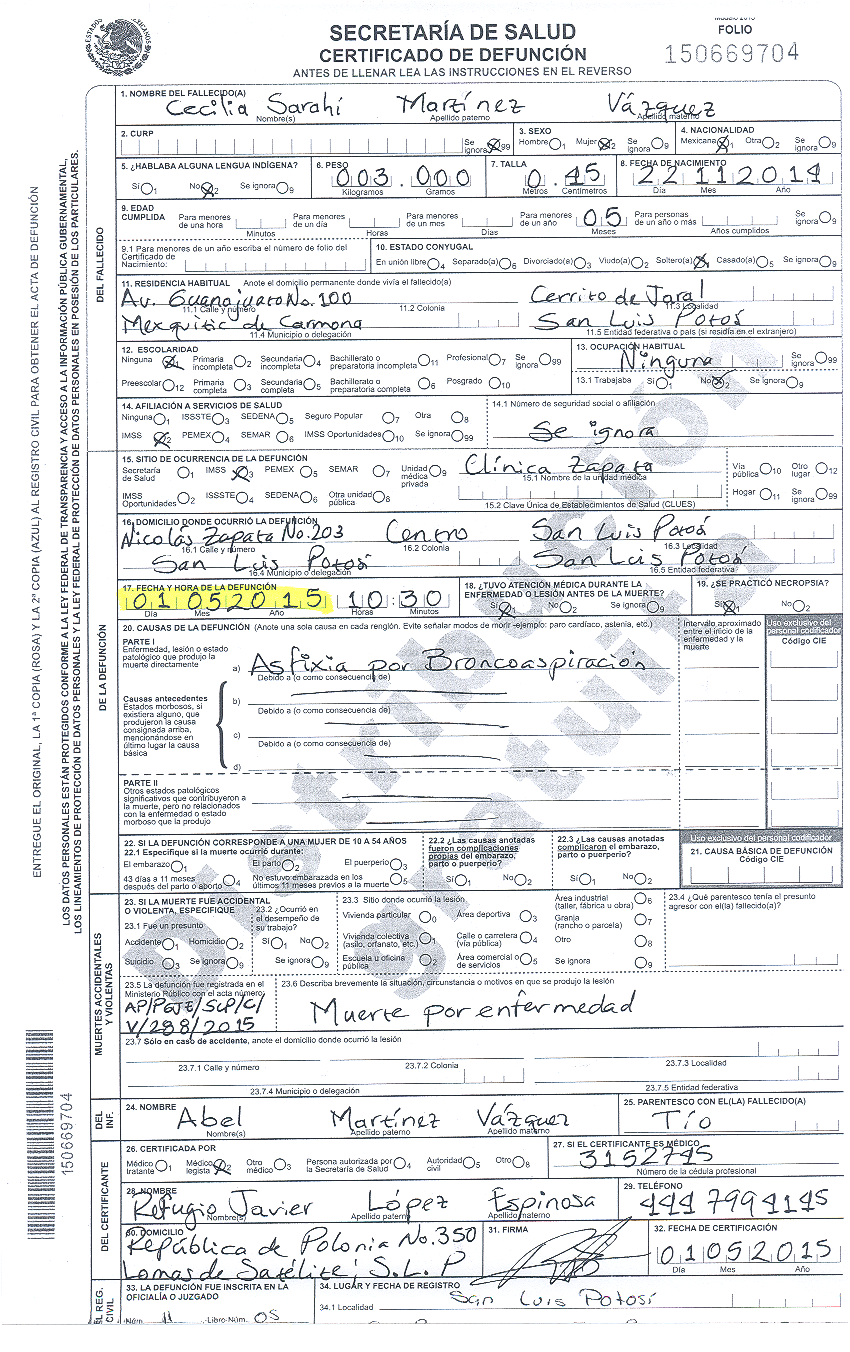 Modelo 2010
SECRETARÍA DE SALUD
CERTIFICADO DE DEFUNCIÓN
ANTES DE LLENAR LEA LAS INSTRUCCIONES EN EL REVERSO
FOLIO
150669704
ENTREGUE EL ORIGINAL, LA 1ª COPIA (ROSA) Y LA 2ª COPIA (AZUL) AL REGISTRO CIVIL PARA OBTENER EL ACTA DE DEFUNCIÓN
LOS DATOS PERSONALES ESTÁN PROTEGIDOS CONFORME A LA LEY FEDERAL DE TRANSPARENCIA Y ACCESO A LA INFORMACIÓN PÚBLICA GUBERNAMENTAL,
LOS LINEAMIENTOS DE PROTECCIÓN DE DATOS PERSONALES Y LA LEY FEDERAL DE PROTECCIÓN DE DATOS PERSONALES EN POSESIÓN DE LOS PARTICULARES.
150669704
Distribución gratuita
DEL FALLECIDO
1. NOMBRE DEL FALLECIDO(A)
Cecilia Sarahí Martínez Vázquez
Nombre(s) Apellido paterno Apellido materno
2. CURP Se ignora 99
3. SEXO Hombre 1 Mujer 2
4. NACIONALIDAD Mexicana 1 Otra 2 Se ignora 9
5. ¿HABLABA ALGUNA LENGUA INDÍGENA?
Sí 1 No 2 Se ignora 9
6. PESO 003.000
Kilogramos Gramos
7. TALLA 0.45
Metros Centímetros
8. FECHA DE NACIMIENTO
22112014
Día Mes Año
9. EDAD CUMPLIDA
Para menores de una hora Minutos
Para menores de un día Horas
Para menores de un mes Días
Para menores de un año 05 Meses
Para personas de un año o más Años cumplidos
Se ignora 9
9.1 Para menores de un año escriba el número de folio del Certificado de Nacimiento:
10. ESTADO CONYUGAL
En unión libre 4 Separado(a) 6 Divorciado(a) 3 Viudo(a) 2 Soltero(a) Casado(a) 5 Se ignora 9
11. RESIDENCIA HABITUAL Anote el domicilio permanente donde vivía el fallecido(a)
Av. Guanajuato No. 100 Cerrito de Jaral
11.1 Calle y número 11.2 Colonia 11.3 Localidad
Mexquitic de Carmona San Luis Potosí
11.4 Municipio o delegación 11.5 Entidad federativa o país (si residía en el extranjero)
12. ESCOLARIDAD
Ninguna Primaria incompleta 2 Secundaria incompleta 4 Bachillerato o preparatoria incompleta 11 Profesional 7 Se ignora 99
Preescolar 12 Primaria completa 3 Secundaria completa 5 Bachillerato o preparatoria completa 6 Posgrado 10
13. OCUPACIÓN HABITUAL
Ninguna Se ignora 99
13.1 Trabajaba Sí 1 No 2 Se ignora 9
14. AFILIACIÓN A SERVICIOS DE SALUD
Ninguna 1 ISSSTE 3 SEDENA 5 Seguro Popular 7 Otra 8
IMSS 2 PEMEX 4 SEMAR 6 IMSS Oportunidades 10 Se ignora 99
14.1 Número de seguridad social o afiliación
Se ignora
DE LA DEFUNCIÓN
15. SITIO DE OCURRENCIA DE LA DEFUNCIÓN
Secretaría de Salud 1 IMSS 3 PEMEX 5 SEMAR 7 Unidad médica privada 9
IMSS Oportunidades 2 ISSSTE 4 SEDENA 6 Otra unidad pública 8
Clínica Zapata
15.1 Nombre de la unidad médica
15.2 Clave Única de Establecimientos de Salud (CLUES)
Vía pública 10 Otro lugar 12
Hogar 11 Se ignora 99
16. DOMICILIO DONDE OCURRIÓ LA DEFUNCIÓN
Nicolás Zapata No. 203 Centro San Luis Potosí
16.1 Calle y número 16.2 Colonia 16.3 Localidad
San Luis Potosí San Luis Potosí
16.4 Municipio o delegación 16.5 Entidad federativa
17. FECHA Y HORA DE LA DEFUNCIÓN
01052015 10:30
Día Mes Año Horas Minutos
18. ¿TUVO ATENCIÓN MÉDICA DURANTE LA ENFERMEDAD O LESIÓN ANTES DE LA MUERTE?
Sí 1 No 2 Se ignora 9
19. ¿SE PRACTICÓ NECROPSIA?
Sí 1 No 2
20. CAUSAS DE LA DEFUNCIÓN (Anote una sola causa en cada renglón. Evite señalar modos de morir -ejemplo: paro cardíaco, astenia, etc.)
Intervalo aproximado entre el inicio de la enfermedad y la muerte
Uso exclusivo del personal codificador
Código CIE
PARTE I
Enfermedad, lesión o estado patológico que produjo la muerte directamente
a) Asfixia por Broncoaspiración
Debido a (o como consecuencia de)
Causas antecedentes
Estados morbosos, si existiera alguno, que produjeron la causa consignada arriba, mencionándose en último lugar la causa básica
b)
Debido a (o como consecuencia de)
c)
Debido a (o como consecuencia de)
d)
PARTE II
Otros estados patológicos significativos que contribuyeron a la muerte, pero no relacionados con la enfermedad o estado morboso que la produjo
22. SI LA DEFUNCIÓN CORRESPONDE A UNA MUJER DE 10 A 54 AÑOS
22.1 Especifique si la muerte ocurrió durante:
El embarazo 1 El parto 2 El puerperio 3
43 días a 11 meses después del parto o aborto 4 No estuvo embarazada en los últimos 11 meses previos a la muerte 5
22.2 ¿Las causas anotadas fueron complicaciones propias del embarazo, parto o puerperio?
Sí 1 No 2
22.3 ¿Las causas anotadas complicaron el embarazo, parto o puerperio?
Sí 1 No 2
Uso exclusivo del personal codificador
21. CAUSA BÁSICA DE DEFUNCIÓN
Código CIE
MUERTES ACCIDENTALES Y VIOLENTAS
23. SI LA MUERTE FUE ACCIDENTAL O VIOLENTA, ESPECIFIQUE
23.1 Fue un presunto
Accidente 1 Homicidio 2
Suicidio 3 Se ignora 9
23.2 ¿Ocurrió en el desempeño de su trabajo?
Sí 1 No 2
Se ignora 9
23.3 Sitio donde ocurrió la lesión
Vivienda particular 0 Área deportiva 3 Área industrial (taller, fábrica u obra) 6
Vivienda colectiva (asilo, orfanato, etc.) 1 Calle o carretera (vía pública) 4 Granja (rancho o parcela) 7
Escuela u oficina pública 2 Área comercial o de servicios 5 Otro 8
Se ignora 9
23.4 ¿Qué parentesco tenía el presunto agresor con el(la) fallecido(a)?
23.5 La defunción fue registrada en el Ministerio Público con el acta número
AP/PGJE/SLP/C/
V/288/2015
23.6 Describa brevemente la situación, circunstancia o motivos en que se produjo la lesión
Muerte por enfermedad
23.7 Sólo en caso de accidente, anote el domicilio donde ocurrió la lesión
23.7.1 Calle y número 23.7.2 Colonia 23.7.3 Localidad
23.7.4 Municipio o delegación 23.7.5 Entidad federativa
DEL INF.
24. NOMBRE
Abel Martínez Vázquez
Nombre(s) Apellido paterno Apellido materno
25. PARENTESCO CON EL(LA) FALLECIDO(A)
Tío
DEL CERTIFICANTE
26. CERTIFICADA POR
Médico tratante 1 Médico legista 2 Otro médico 3 Persona autorizada por la Secretaría de Salud 4 Autoridad civil 5 Otro 8
27. SI EL CERTIFICANTE ES MÉDICO
3152745
Número de la cédula profesional
28. NOMBRE
Refugio Javier López Espinosa
Nombre(s) Apellido paterno Apellido materno
29. TELÉFONO
444 7994145
30. DOMICILIO
República de Polonia No. 350
Lomas de Satélite, S.L.P
31. FIRMA
32. FECHA DE CERTIFICACIÓN
01052015
Día Mes Año
EL REG. CIVIL
33. LA DEFUNCIÓN FUE INSCRITA EN LA OFICIALÍA O JUZGADO
Núm. 11 -Libro-Núm. 05
34. LUGAR Y FECHA DE REGISTRO
34.1 Localidad San Luis Potosí